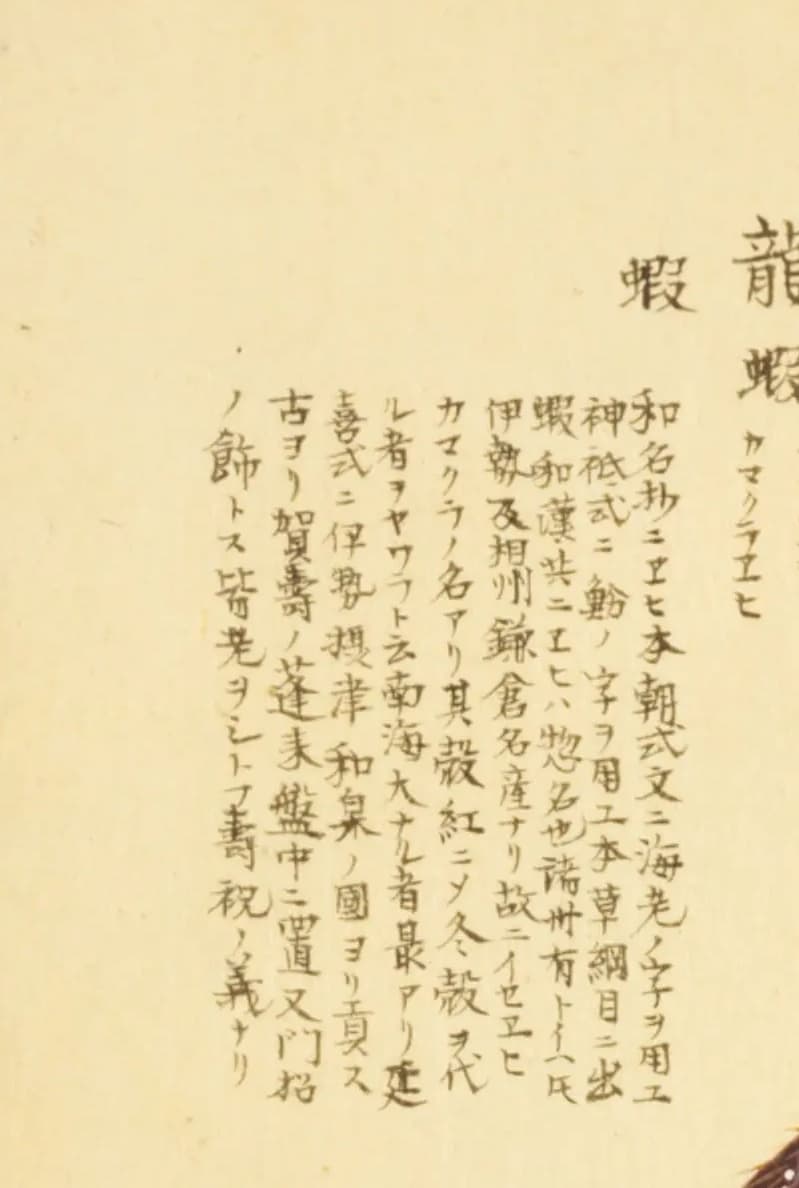 龍蝦 カマクラヱヒ
蝦
和名抄ニヱヒ本朝式文ニ海老ノ字ヲ用エ
神祇式ニ魵ノ字ヲ用エ本草綱目ニ出
蝦和漢共ニヱヒハ惣名也諸州有トイヘ𪜈
伊勢及相州鎌倉名産ナリ故ニイセヱヒ
カマクラノ名アリ其殻紅ニ〆冬殻ヲ代
ル者ヲヤワラト云南海大ナル者最アリ延
喜式ニ伊勢摂津和泉ノ國ヨリ貢ス
古ヨリ賀壽ノ蓬莱盤中ニ置又門松
ノ飾トス皆老ヲ壽祝ノ義ナリ